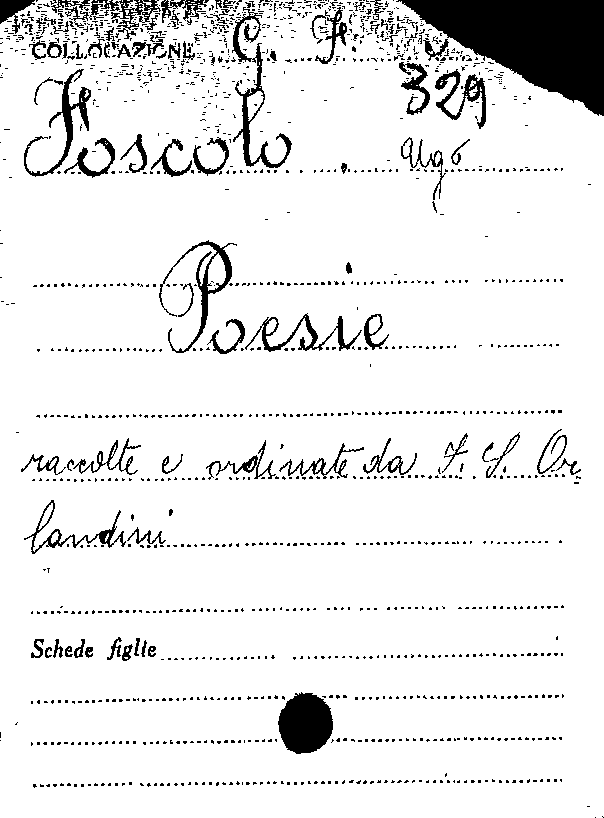 COLLOCAZIONE G. F.
329
Foscolo Ugo
Poesie
raccolte e ordinate da F. S. Or
landini
Schede figlie